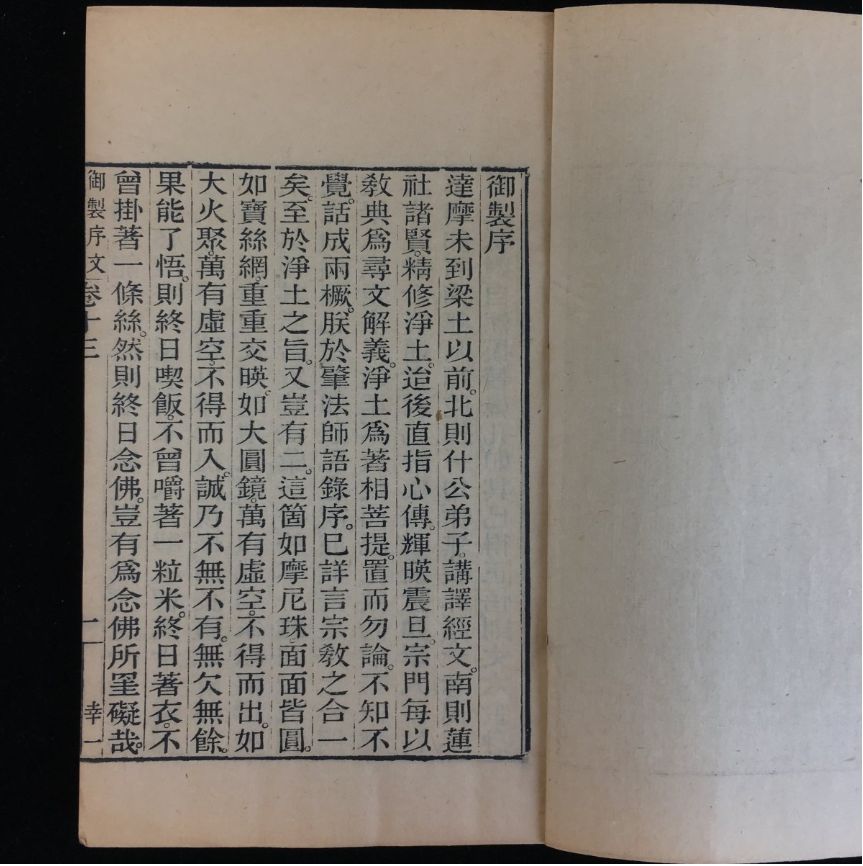 御製序
達摩未到梁土以前。北則什公弟子。講譯經文。南則蓮
社諸賢。精修淨土。迨後直指心傳。輝暎震旦。宗門每以
敎典爲尋文解義。淨土爲著相菩提。置而勿論。不知不
覺。話成兩橛。朕於肇法師語錄序。已詳言宗敎之合一
矣。至於淨土之旨。又豈有二。這箇如摩尼珠。面面皆圓。
如寶絲網。重重交暎。如大圓鏡。萬有虛空。不得而出。如
大火聚。萬有虛空。不得而入。誠乃不無不有。無欠無餘。
果能了悟。則終日喫飯。不曾嚼著一粒米。終日著衣。不
曾掛著一條絲。然則終日念佛。豈有爲念佛所罣礙哉。
御製序文 卷十三 二 幸一